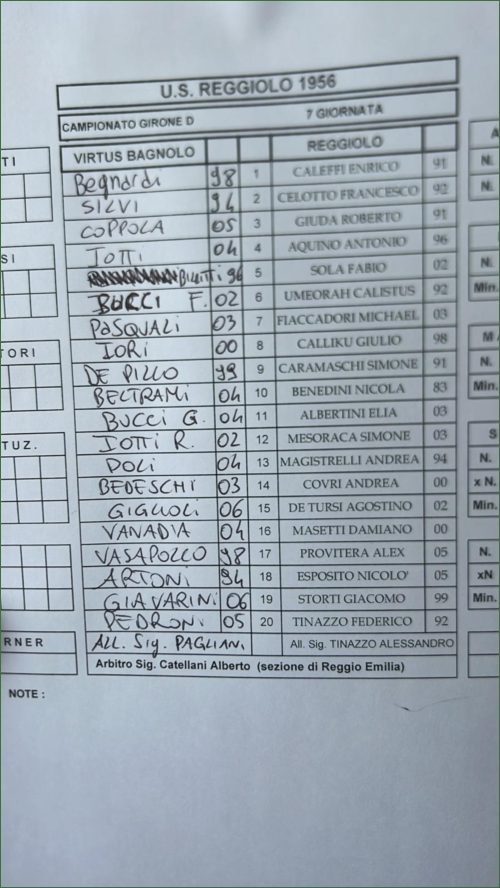 U.S. REGGIOLO 1956
CAMPIONATO GIRONE D 7 GIORNATA
VIRTUS BAGNOLO REGGIOLO
Begnardi 98 1 CALEFFI ENRICO 91
SILVI 94 2 CELOTTO FRANCESCO 92
COPPOLA 05 3 GIUDA ROBERTO 91
IOTTI 04 4 AQUINO ANTONIO 96
96 5 SOLA FABIO 02
BUCCI F. 02 6 UMEORAH CALISTUS 92
PASQUALI 03 7 FIACCADORI MICHAEL 03
IORI 00 8 CALLIKU GIULIO 98
DE PILLO 99 9 CARAMASCHI SIMONE 91
BELTRAMI 04 10 BENEDINI NICOLA 83
BUCCI G. 04 11 ALBERTINI ELIA 03
IOTTI R. 02 12 MESORACA SIMONE 03
POLI 04 13 MAGISTRELLI ANDREA 94
BEDESCHI 03 14 COVRI ANDREA 00
GIGLIOLI 06 15 DE TURSI AGOSTINO 02
VANADIA 04 16 MASETTI DAMIANO 00
VASAPOLLO 98 17 PROVITERA ALEX 05
ARTONI 94 18 ESPOSITO NICOLO' 05
GIAVARINI 06 19 STORTI GIACOMO 99
PEDRONI 05 20 TINAZZO FEDERICO 92
ALL. Sig. PAGLIANI All. Sig. TINAZZO ALESSANDRO
Arbitro Sig. Catellani Alberto (sezione di Reggio Emilia)
TI
SI
ORI
TUZ.
RNER
NOTE :
A
N.
N.
N.
Min.
M
N.
Min.
S
N.
x N.
Min.
N.
xN
Min.